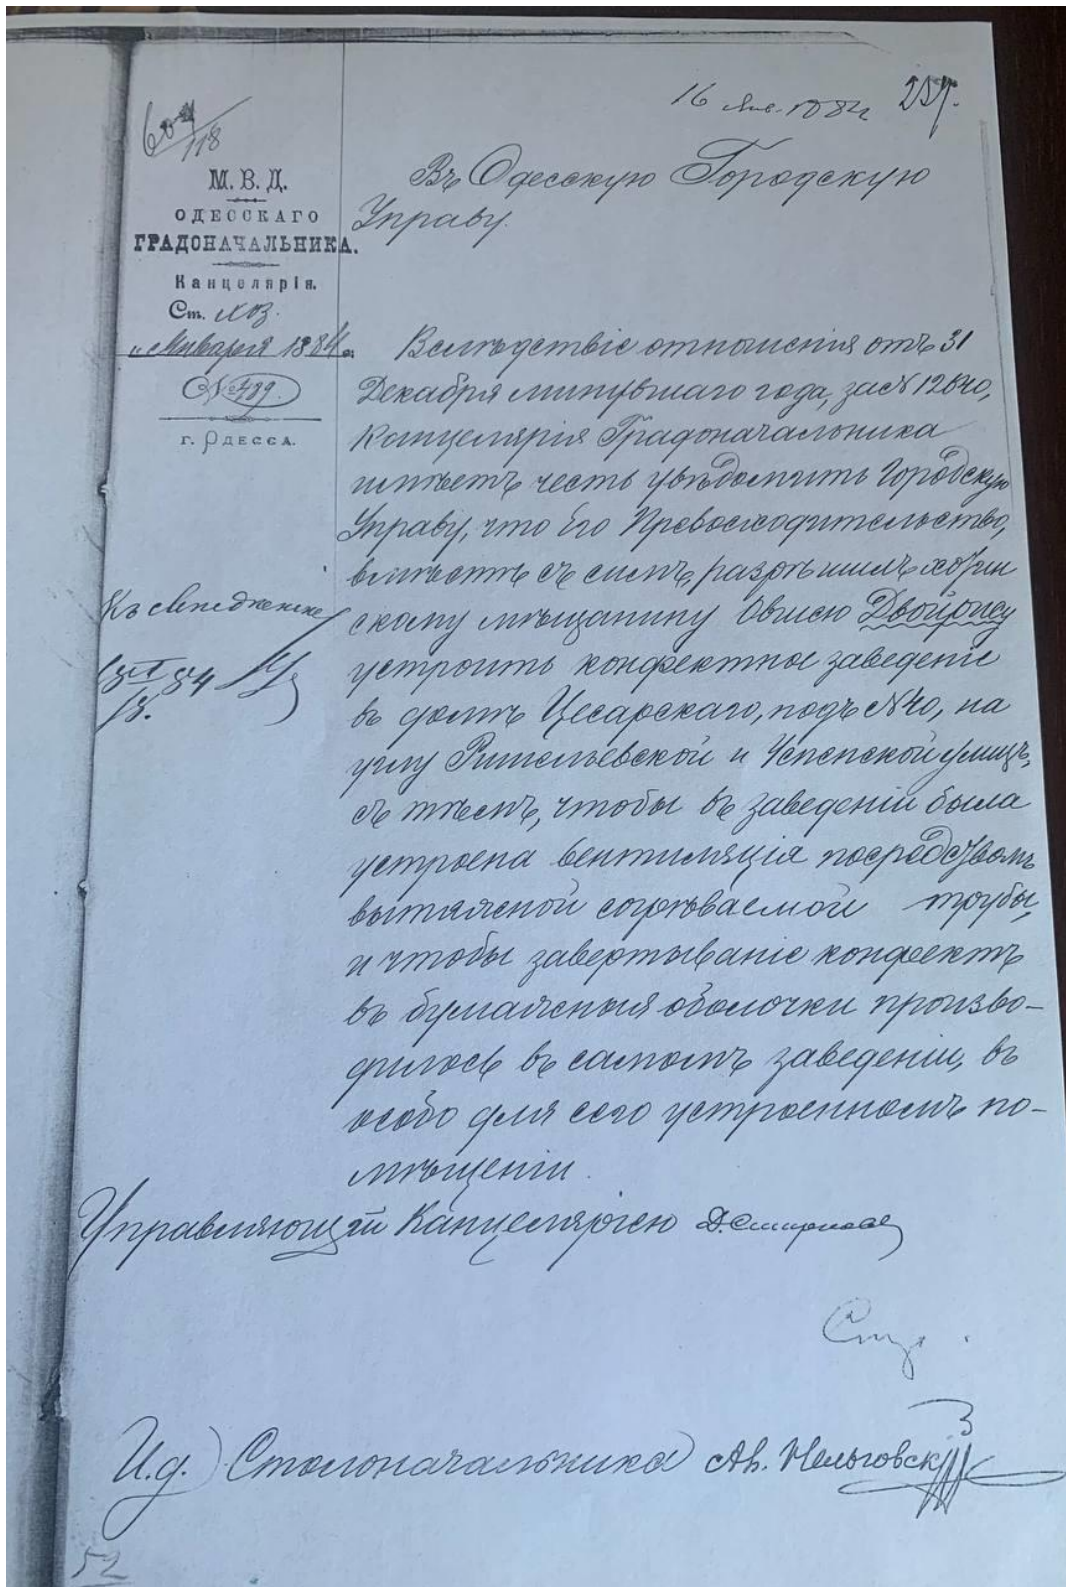 16 Янв. 1884
259.
604/118
М. В. Д.
ОДЕССКАГО
ГРАДОНАЧАЛЬНИКА.
Канцелярія.
Ст. хоз.
„ Января 1884 г.
№ 489.
г. ОДЕССА.
Въ Одесскую Городскую
Управу.
Вслѣдствіе отношенія отъ 31
Декабря минувшаго года, за №
Канцелярія Градоначальника
имѣетъ честь увѣдомить Городскую
Управу, что Его Превосходительство,
вмѣстѣ съ симъ, разрѣшилъ
скому мѣщанину Овшею Двойрису
устроить конфектное заведеніе
въ домѣ Цесарскаго, подъ № 40, на
углу Ришельевской и Успенской улицъ,
съ тѣмъ, чтобы въ заведеніи была
устроена вентиляція посредствомъ
вытяжной согрѣваемой трубы,
и чтобы завертываніе конфектъ
въ бумажныя оболочки произво-
дилось въ самомъ заведеніи, въ
особо для сего устроенномъ по-
мѣщеніи.
Къ свѣдѣнію
Управляющій Канцеляріею Д. Смирновъ
И. д. Столоначальника Ав.
52